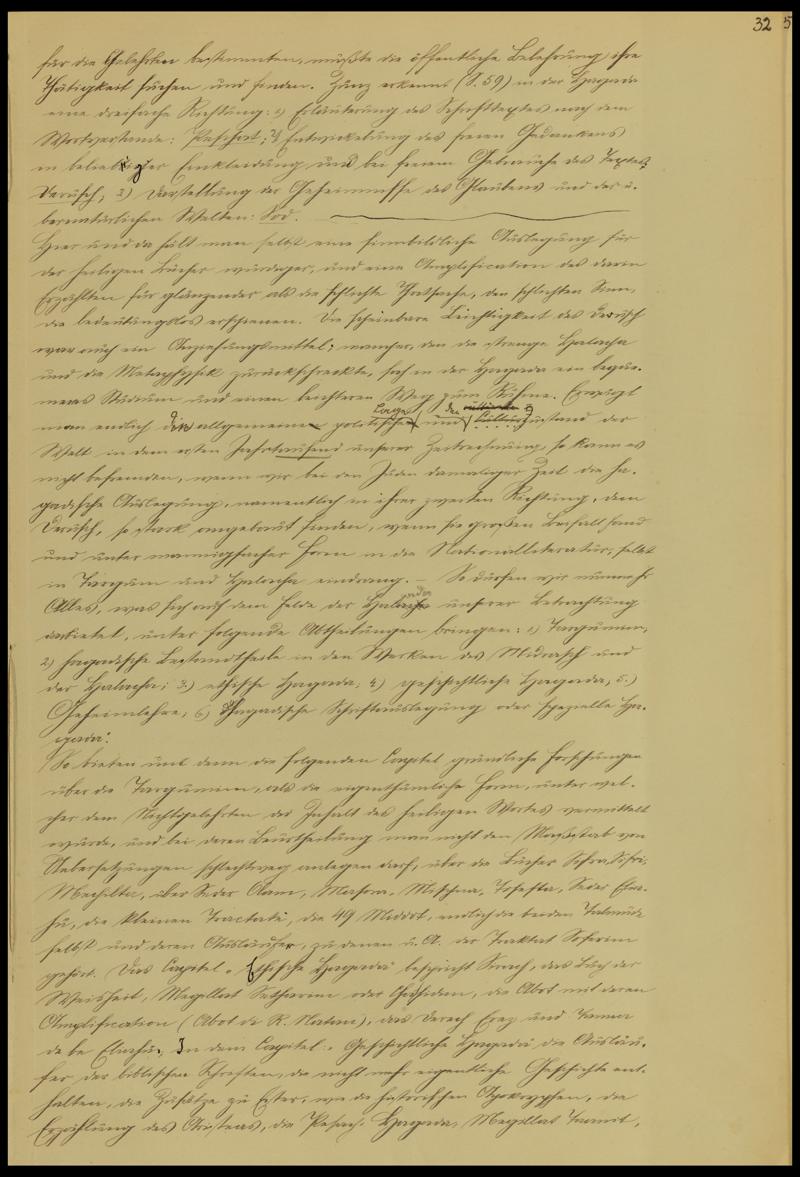 32 5
für die Gelehrten bestimmten, mußte die öffentliche Belehrung ihre
Thätigkeit suchen und finden. Zunz erkennt (S. 59) in der Hagada
eine dreifache Richtung: 1) Erläuterung des Schrifttextes nach dem
Wortverstande: Peschat; 2) Entwickelung des freien Gedankens
in beliebiger Einkleidung und bei freiem Gebrauche des Textes:
Derusch, 3) Darstellung der Geheimnisse des Glaubens und der ü-
bernatürlichen Welten: Sod.
Hier und da hält man selbst eine sinnbildliche Auslegung für
der heiligen Bücher würdiger, und eine Amplification des darin
Erzählten für glänzender als die schlichte Thatsache, den schlichten Sinn,
die bedeutungslos erschienen. Die scheinbare Leichtigkeit des Derusch
war auch ein Anziehungsmittel; mancher, den die strenge Halacha
und die Metaphysik zurückschreckte, sah in der Hagada ein beque-
meres Studium und einen leichteren Weg zum Ruhme. Erwägt
man endlich die allgemeine politische Lage und den Culturzustand der
Welt in dem ersten Jahrtausend unserer Zeitrechnung, so kann es
nicht befremden, wenn wir bei den Juden damaliger Zeit die ha-
gadische Auslegung, namentlich in ihrer zweiten Richtung, dem
Derusch, so stark angebaut finden, wenn sie großen Beifall fand
und unter mannigfacher Form in die Nationalliteratur, selbst
in Targum und Halacha eindrang. – So dürfen wir nunmehr
Alles, was sich auf dem Felde der Hagada unserer Betrachtung
darbietet, unter folgende Abtheilungen bringen: 1) Targumim,
2) hagadische Bestandtheile in den Werken des Midrasch und
der Halacha; 3.) ethische Hagada; 4.) geschichtliche Hagada, 5.)
Geheimlehre, 6) Hagadische Schriftauslegung oder spezielle Ha-
gada.
So bieten uns denn die folgenden Capitel gründliche Forschungen
über die Targumim, als die eigenthümliche Form, unter wel-
cher dem Nichtgelehrten der Inhalt des heiligen Wortes vermittelt
wurde, und bei deren Beurtheilung man nicht den Maßstab von
Uebersetzungen schlechtweg anlegen darf, über die Bücher Sifra, Sifri,
Mechilta, über Seder Olam, Masora, Mischna, Tosefta, Seder Elia-
hu, die kleinen Tractate, die 49 Middot, endlich die beiden Talmude
selbst und deren Ausläufer, zu denen u. A. der Traktat Soferim
gehört. Das Capitel "Ethische Hagada" bespricht Sirach, das Buch der
Weisheit, Megillat Setharim oder Chasidim, die Abot mit deren
Amplification (Abot de R. Natan), das Derech Erez und Tanna
de be Eliahu. In dem Capitel: "Geschichtliche Hagada" die Ausläu-
fer der biblischen Schriften, die nicht mehr eigentliche Geschichte ent-
halten, die Zusätze zu Ester, wie die historischen Apokryphen, die
Erzählung des Aristeas, die Pesach-Hagada, Megillat Taanit,